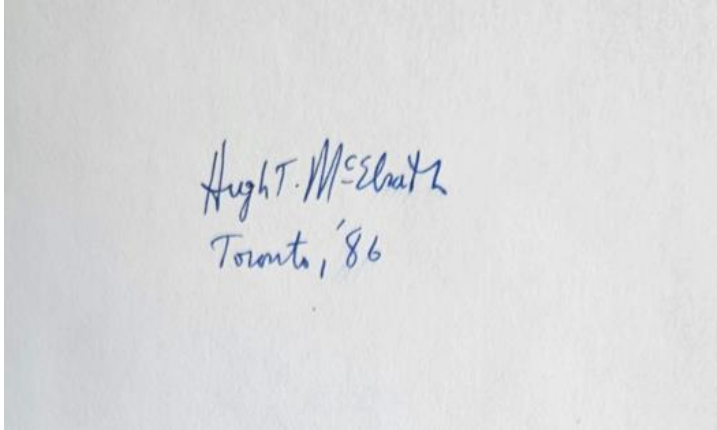 Hugh T. McElrath
Toronto, '86